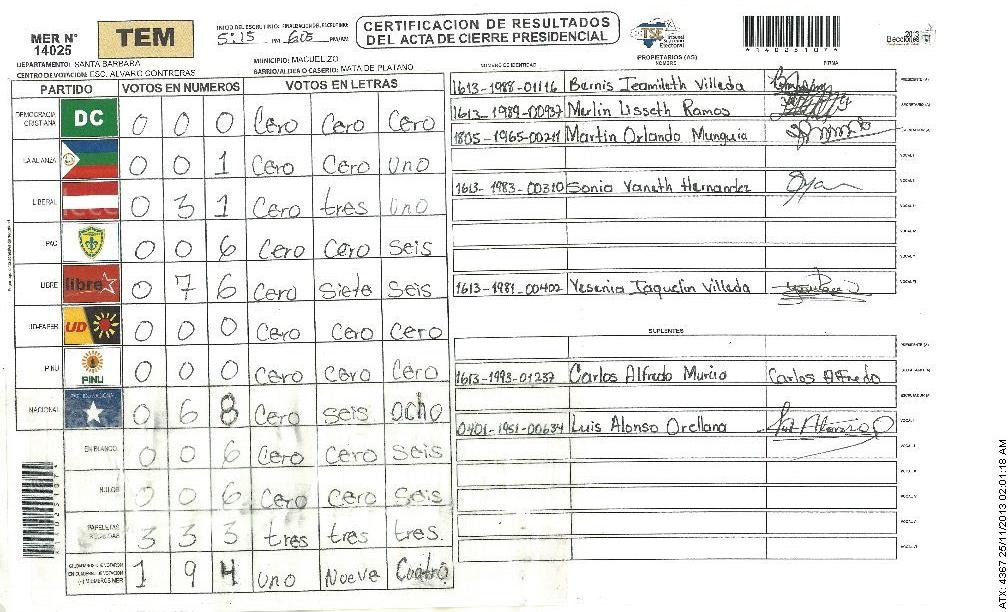 MER N° 14025
TEM
INICIO DEL ESCRUTINIO: 5:15 PM FINALIZACION DEL ESCRUTINIO: 605 PM/AM
CERTIFICACION DE RESULTADOS
DEL ACTA DE CIERRE PRESIDENCIAL
TSE
Tribunal Supremo Electoral
2013
Elecciones
DEPARTAMENTO: SANTA BARBARA
MUNICIPIO: MACUELIZO
CENTRO DE VOTACION: ESC. ALVARO CONTRERAS
BARRIO/ALDEA O CASERIO: MATA DE PLATANO
PARTIDO VOTOS EN NUMEROS VOTOS EN LETRAS
DEMOCRACIA CRISTIANA DC 0 0 0 Cero Cero Cero
LA ALIANZA 0 0 1 Cero Cero Uno
LIBERAL 0 3 1 Cero tres Uno
PAC 0 0 6 Cero Cero Seis
LIBRE libre 0 7 6 Cero Siete Seis
UD-FAPER UD 0 0 0 Cero Cero Cero
PINU PINU 0 0 0 Cero Cero Cero
NACIONAL 0 6 8 Cero Seis Ocho
EN BLANCO 0 0 6 Cero Cero Seis
NULOS 0 0 6 Cero Cero Seis
PAPELETAS RECIBIDAS 3 3 3 tres tres tres.
1 9 4 Uno Nueve Cuatro
PROPIETARIOS (AS)
NUMERO DE IDENTIDAD NOMBRE FIRMA
1613-1988-01116 Bernis Jeamileth Villeda PRESIDENTE (A)
1613-1989-00937 Merlin Lisseth Ramos SECRETARIO (A)
1805-1965-00211 Martin Orlando Munguia
VOCAL I
1613-1983-00310 Sonia Yaneth Hernandez
1613-1981-00402 Yesenia Jaquelin Villeda
SUPLENTES
PRESIDENTE (A)
1613-1993-01237 Carlos Alfredo Murcia Carlos Alfredo
ESCRUTADOR (A)
0401-1951-00634 Luis Alonso Orellana
ATX: 4367 25/11/2013 02:01:18 AM